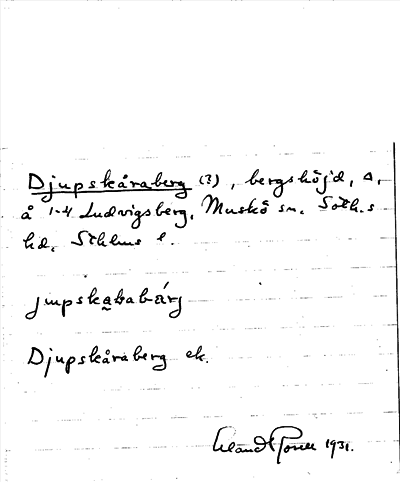 Djupskåraberg (3), bergshöjd, Δ,
å 1-4 Ludvigsberg, Muskö sn. Soth.s
hd, Sthlms l.
Djupskåraberg ek.
1931.